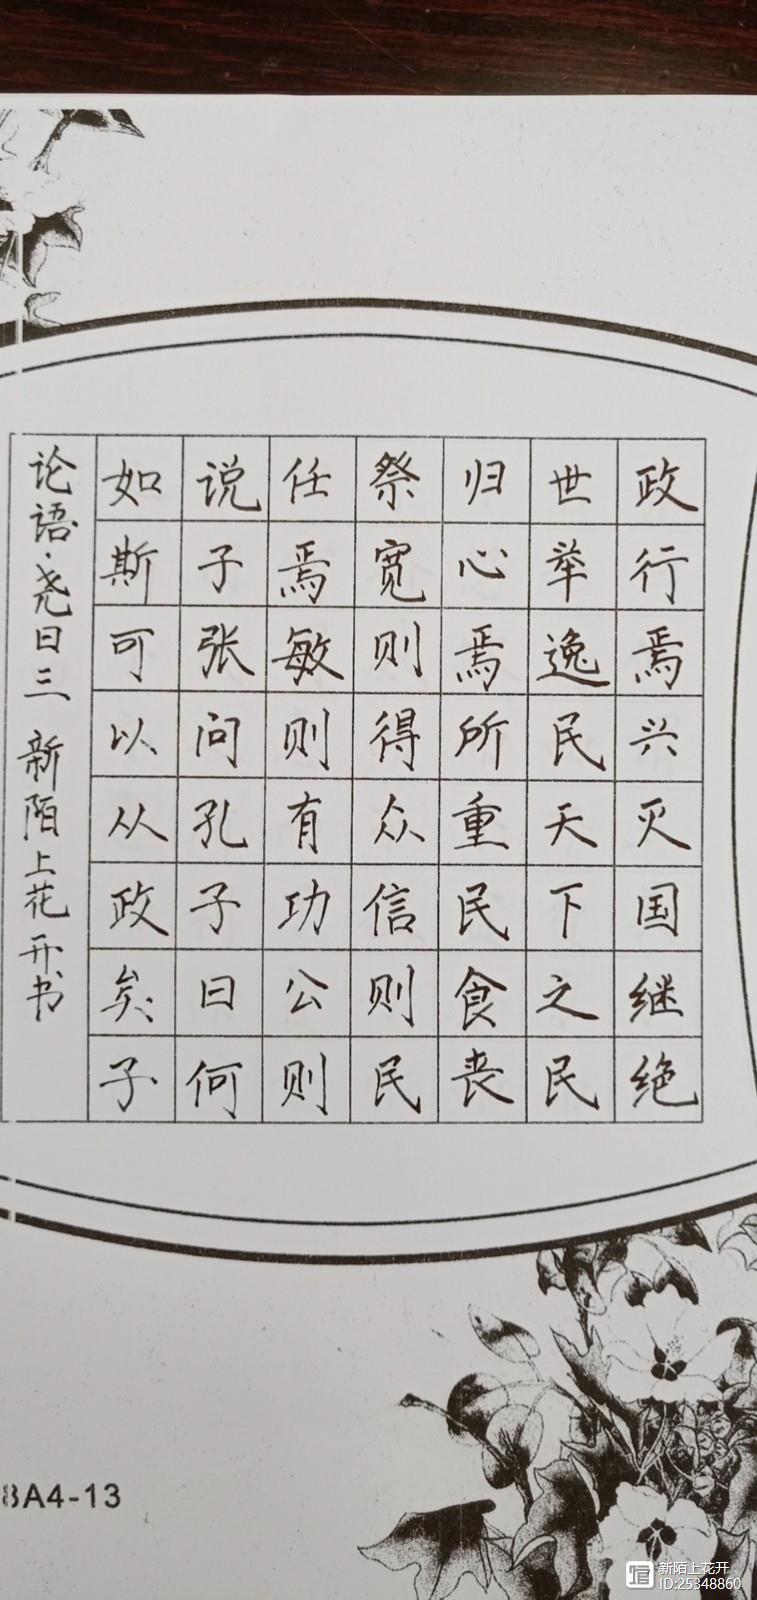 政行焉兴灭国继绝
世举逸民天下之民
归心焉所重民食丧
祭宽则得众信则民
任焉敏则有功公则
说子张问孔子曰何
如斯可以从政矣子
论语·尧曰三 新陌上花开书
8A4-13
新陌上花开
ID:25348860